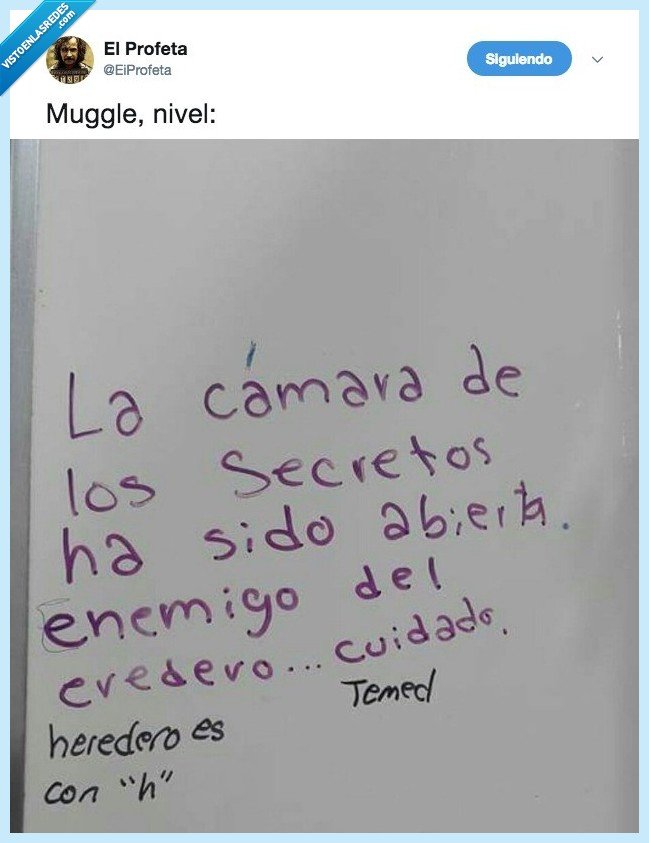 VISTOENLASREDES
.com
El Profeta
@EiProfeta
Siguiendo
Muggle, nivel:
La cámara de
los Secretos
ha sido abierta.
enemigo del
eredero... cuidado.
Temed
heredero es
con "h"